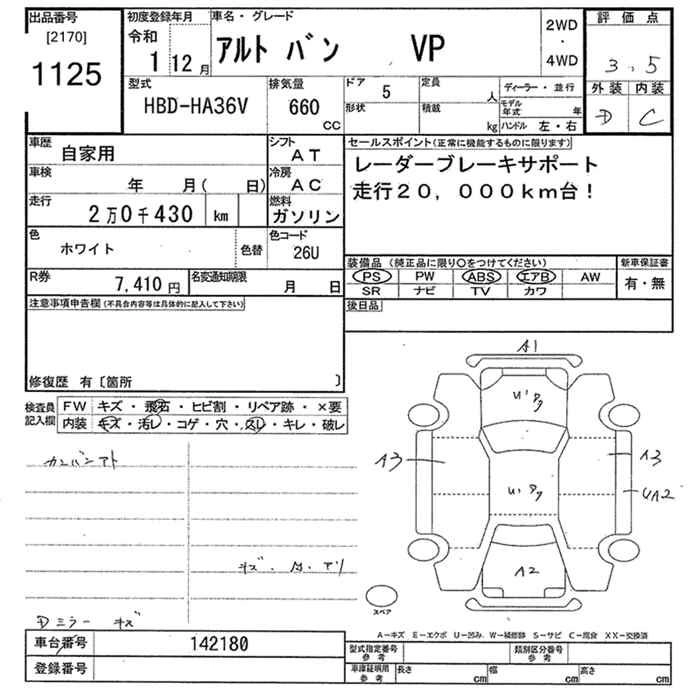 出品番号
[2170]
1125
初度登録年月
令和
1 12月
車名・グレード
アルト バン VP
2WD
・
4WD
評価点
3.5
外装 内装
D C
型式
HBD-HA36V
排気量
660
cc
ドア 5
形状
定員 人
積載 kg
ディーラー・並行
モデル年式 年
ハンドル 左・右
車歴
自家用
シフト
AT
車検
年 月( 日)
冷房
AC
走行
2万0千430 km
燃料
ガソリン
色
ホワイト
色替
色コード
26U
R券
7,410円
名変通知期限
月 日
セールスポイント(正常に機能するものに限ります)
レーダーブレーキサポート
走行20,000km台!
装備品(純正品に限り○をつけてください)
PS PW ABS エアB AW
SR ナビ TV カワ
新車保証書
有・無
後日品
注意事項申告欄(不具合内容等は具体的に記入して下さい)
修復歴 有〔箇所 〕
検査員
記入欄
FW キズ・飛石・ヒビ割・リペア跡・×要
内装 キズ・汚レ・コゲ・穴・スレ・キレ・破レ
カンバンアト
Dミラー キズ
A1
A3
A3
UA2
A2
スペア
A-キズ E-エクボ U-凹み W-補修跡 S-サビ C-腐食 XX-交換済
車台番号 142180
登録番号
型式指定番号
参考
類別区分番号
参考
車庫証明用
参考
長さ cm
幅 cm
高さ cm